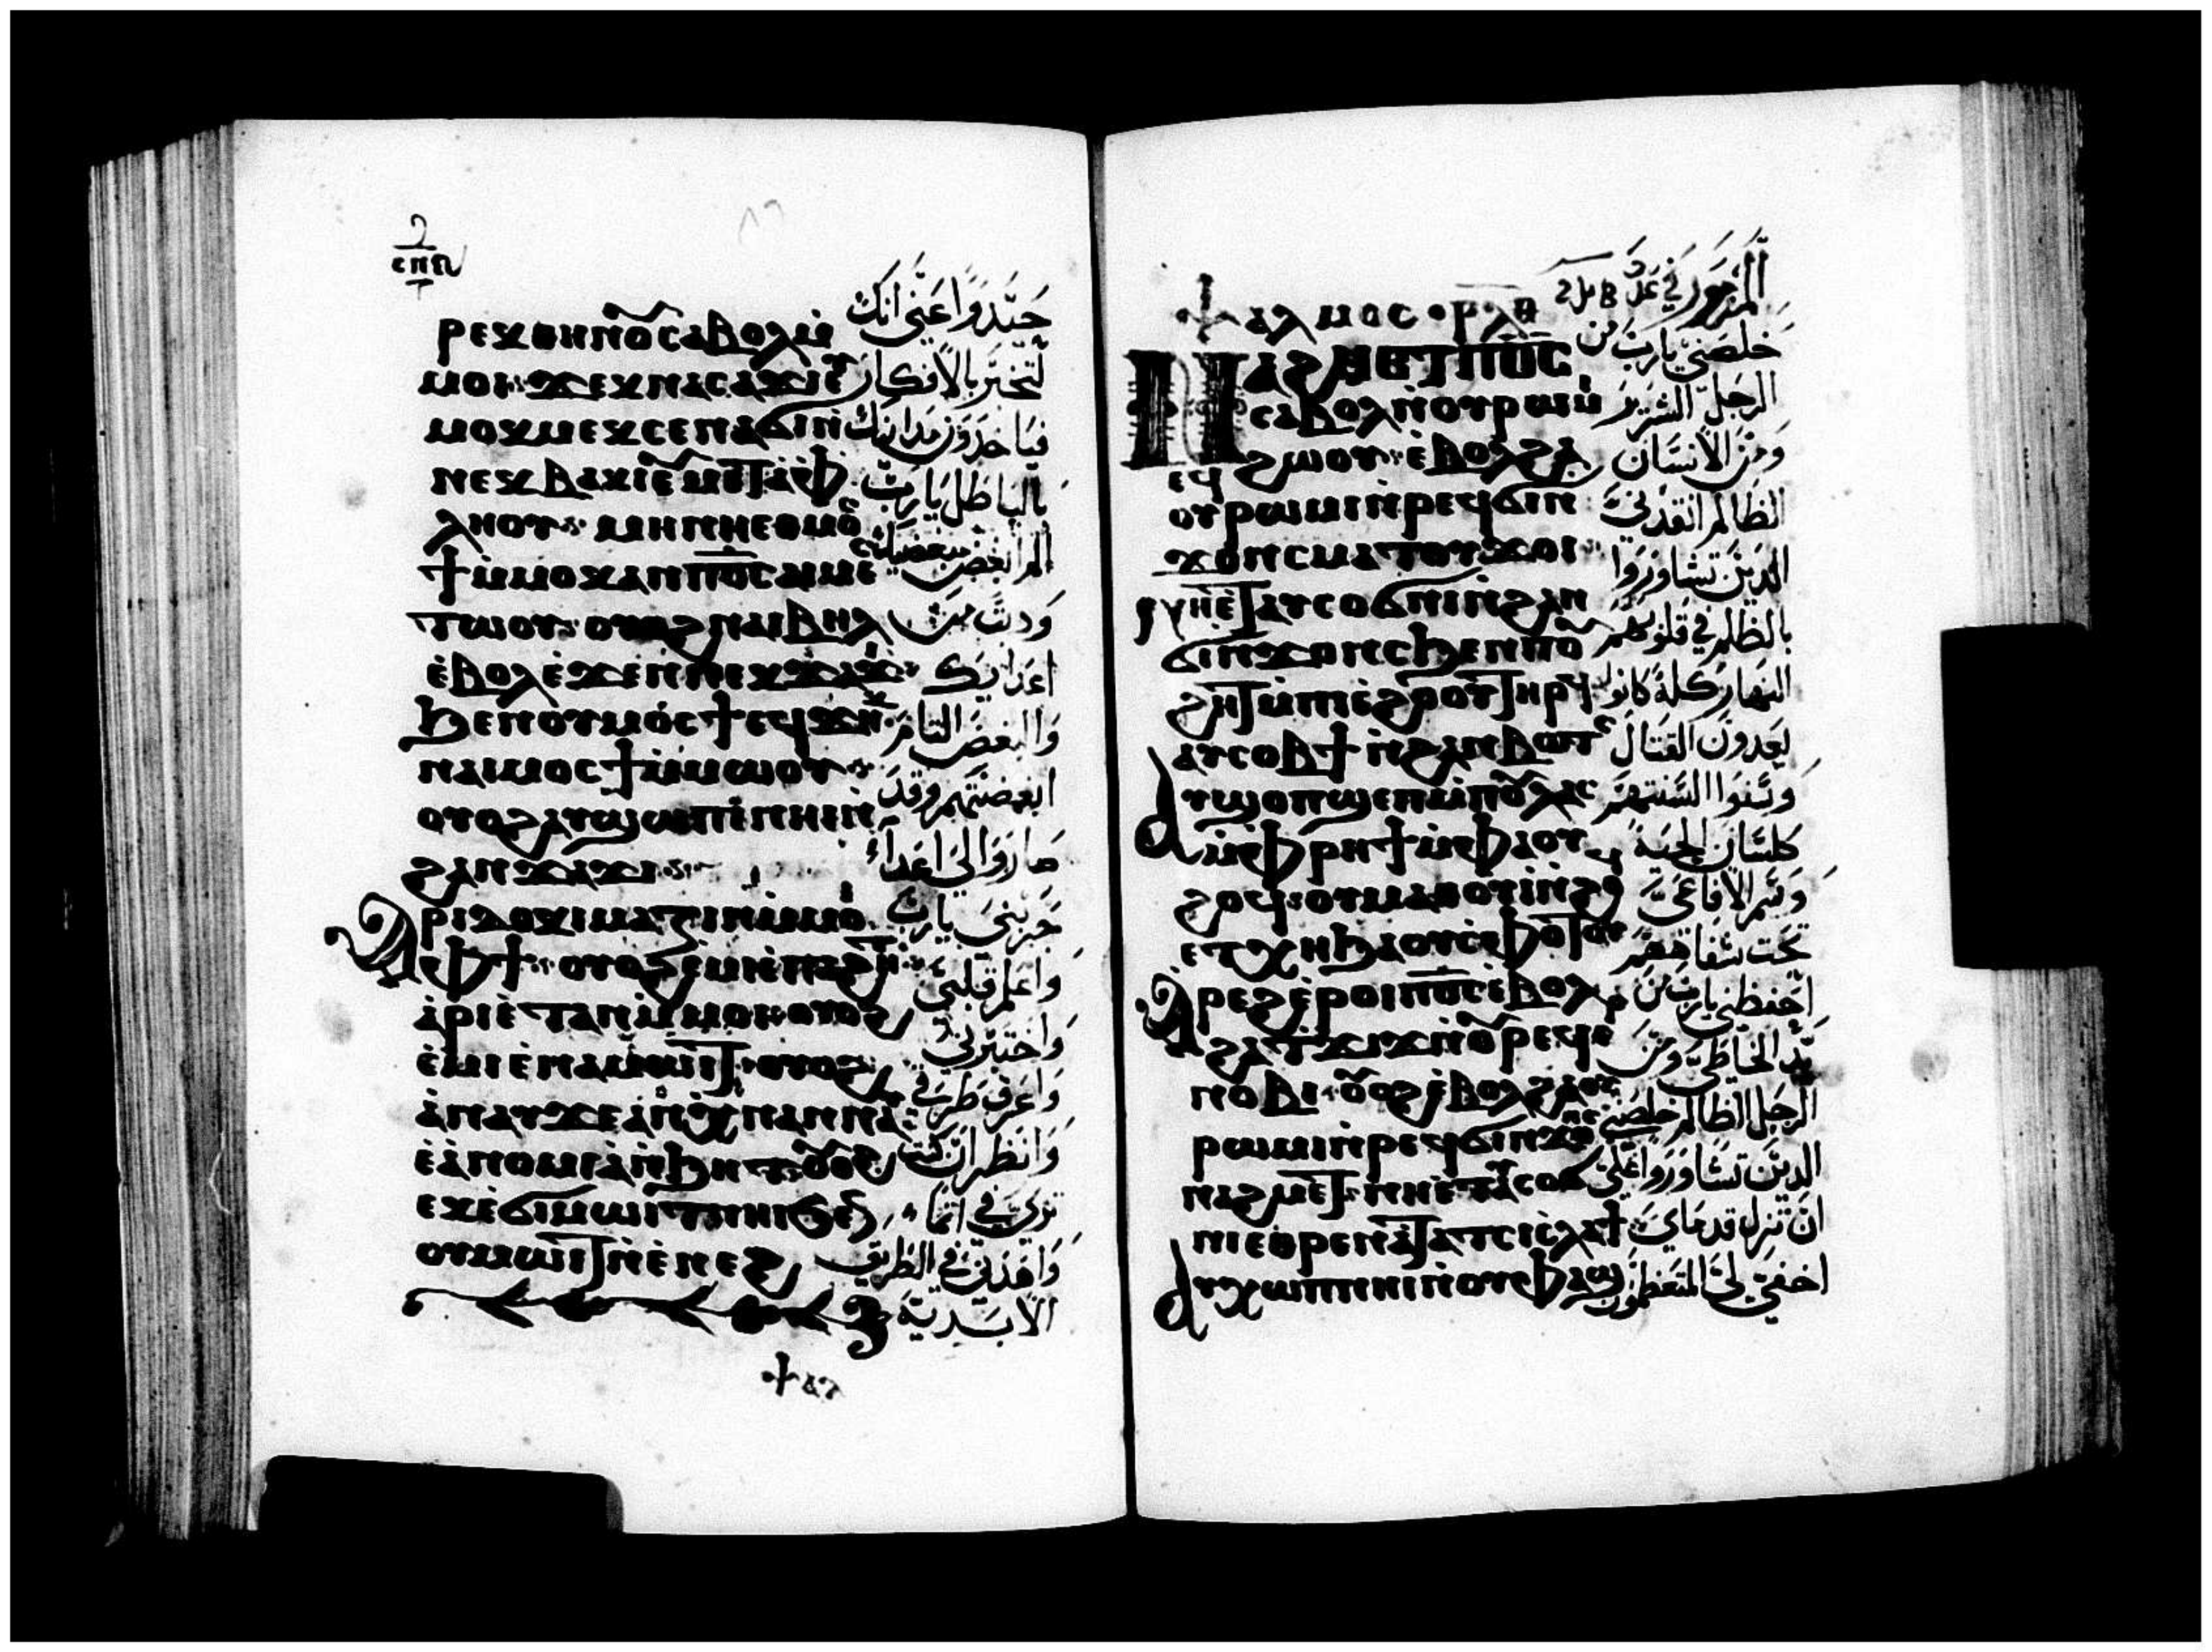 ⲣⲉⲕⲑⲏⲛⲟⲩ ⲥⲁⲃⲟⲗ ⲙ̇
ⲙⲟⲓ ϫⲉ ⲭⲛⲁⲥⲁϫⲓ ⲉ
ⲙⲟⲕⲙⲉⲕ ⲥⲉⲛⲁϭⲓ ⲛ̇
ⲛⲉⲕⲃⲁⲕⲓ ⲉⲩⲙⲉⲧⲉ̇ⲫ
ⲗⲏⲟⲩ ⲙⲏ ⲛⲏⲉⲑⲙⲟⲥ
ϯ ⲙ̇ⲙⲟⲕ ⲁⲛ ⲡ̅ⲟ̅ⲥ̅ ⲁⲓⲙⲉⲥ
ⲧⲱⲟⲩ ⲟⲩⲟϩ ⲛⲁⲓⲃⲏⲗ
ⲉ̇ⲃⲟⲗ ⲉ̇ϫⲉⲛ ⲛⲉⲕϫⲁϫⲓ
ϧⲉⲛ ⲟⲩⲙⲟⲥϯ ⲉϥϫⲏⲕ
ⲛⲁⲓⲙⲟⲥϯ ⲙ̇ⲙⲱⲟⲩ
ⲟⲩⲟϩ ⲁⲩϣⲱⲡⲓ ⲛⲏⲓ ⲛ̇
ϩⲁⲛϫⲁϫⲓ
ⲁⲣⲓⲇⲟⲕⲓⲙⲁⲍⲓⲛ ⲙ̇ⲙⲟⲓ
ⲫϯ ⲟⲩⲟϩ ⲉ̇ⲙⲓ ⲉ̇ⲡⲁϩⲏⲧ
ⲁ̇ⲣⲓⲉ̇ⲧⲁⲛ ⲙ̇ⲙⲟⲓ ⲟⲩⲟϩ
ⲉ̇ⲙⲓ ⲉ̇ⲛⲁⲙⲱⲓⲧ ⲟⲩⲟϩ
ⲁ̇ⲛⲁⲩ ϫⲉ ⲁⲛ ⲭⲛⲁⲛⲁⲩ
ⲉ̇ⲁ̇ⲛⲟⲙⲓⲁ̇ ⲛ̇ϧⲏⲧ ⲟⲩⲟϩ
ⲉⲕⲉ̇ϭⲓⲙⲱⲓⲧ ⲛⲏⲓ ϧⲉⲛ
ⲟⲩⲙⲱⲓⲧ ⲛ̇ⲉ̇ⲛⲉϩ
حيدوا عني انك
تختبر بالافكار
فياخذون مداينك
بالباطل يارب
الم ابغض مبغضيك
وذبت من
اعدايك
والبغض التام
ابغضتهم وقد
صاروا لي اعداء
جربني يارب
واعلم قلبي
واختبرني
واعرف طرقي
وانظر ان كنت
ترى في اثما
واهدني في الطريق
الابدية
ⲯⲁⲗⲙⲟⲥ ⲣⲗⲑ
ⲛⲁϩⲙⲉⲧ ⲡ̅ⲟ̅ⲥ̅
ⲥⲁⲃⲟⲗ ⲛ̇ⲟⲩⲣⲱⲙⲓ
ⲉϥϩⲱⲟⲩ ⲉ̇ⲃⲟⲗϩⲁ
ⲟⲩⲣⲱⲙⲓ ⲛ̇ⲣⲉϥϭⲓⲛ
ϫⲟⲛⲥ ⲙⲁⲧⲟⲩϫⲟⲓ
ⲛⲏⲉ̇ⲧⲁⲩⲥⲟϭⲛⲓ ⲛ̇ϩⲁⲛ
ϭⲓⲛϫⲟⲛⲥ ϧⲉⲛ ⲡⲟⲩ
ϩⲏⲧ ⲙ̇ⲡⲓⲉ̇ϩⲟⲟⲩ ⲧⲏⲣϥ
ⲁⲩⲥⲟⲃϯ ⲛ̇ϩⲁⲛⲃⲱⲧⲥ
ⲁⲩϣⲟⲡϣⲉⲡ ⲙ̇ⲡⲟⲩⲗⲁⲥ
ⲙ̇ⲫⲣⲏϯ ⲙ̇ⲫⲁⲟⲩ
ϩⲟϥ ⲟⲩⲙⲁⲑⲟⲩⲓ ⲛ̇ϩⲟϥ
ⲉⲧⲭⲏ ϧⲁ ⲟⲩⲥⲫⲟⲧⲟⲩ
ⲁⲣⲉϩ ⲉ̇ⲣⲟⲓ ⲡ̅ⲟ̅ⲥ̅ ⲉ̇ⲃⲟⲗ
ϩⲁ ⲧϫⲓϫ ⲛ̇ⲟⲩⲣⲉϥⲉⲣ
ⲛⲟⲃⲓ ⲟⲩⲟϩ ⲉ̇ⲃⲟⲗϩⲁ ⲟⲩ
ⲣⲱⲙⲓ ⲛ̇ⲣⲉϥϭⲓⲛϫⲟⲛⲥ
ⲛⲁϩⲙⲉⲧ ⲛⲏⲉ̇ⲧⲁⲩⲥⲟϭ
ⲛⲓ ⲉ̇ⲑⲣⲉ ⲛⲁϭⲁⲗⲁⲩϫ ⲥⲗⲁϯ
ⲁⲩⲭⲱⲡ ⲛⲏⲓ ⲛ̇ⲟⲩⲫⲁϣ
خلصني يارب من
الرجل الشرير
ومن الانسان
الظالم انقذني
الذين تشاوروا
بالظلم في قلوبهم
النهار كله كانوا
يعدون القتال
وسنوا السنتهم
كلسان الحية
وسم الافاعي
تحت شفاههم
احفظني يارب من
يد الخاطي ومن
الرجل الظالم خلصني
الذين تشاوروا علي
ان تزل قدماي
اخفى لي المتعظمون